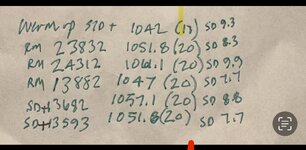 Warm up STD + 1042 (10) SD 9.3
RM 23832 1051.8 (20) SD 8.3
RM 24312 1061.1 (20) SD 9.9
RM 13882 1047 (20) SD 7.7
SD+H 3682 1057.1 (20) SD 8.8
SD+H 3593 1051.6 (20) SD 7.7